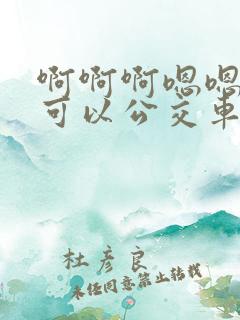 啊啊啊嗯嗯
可以公交车
杜彦良
未经同意禁止转载